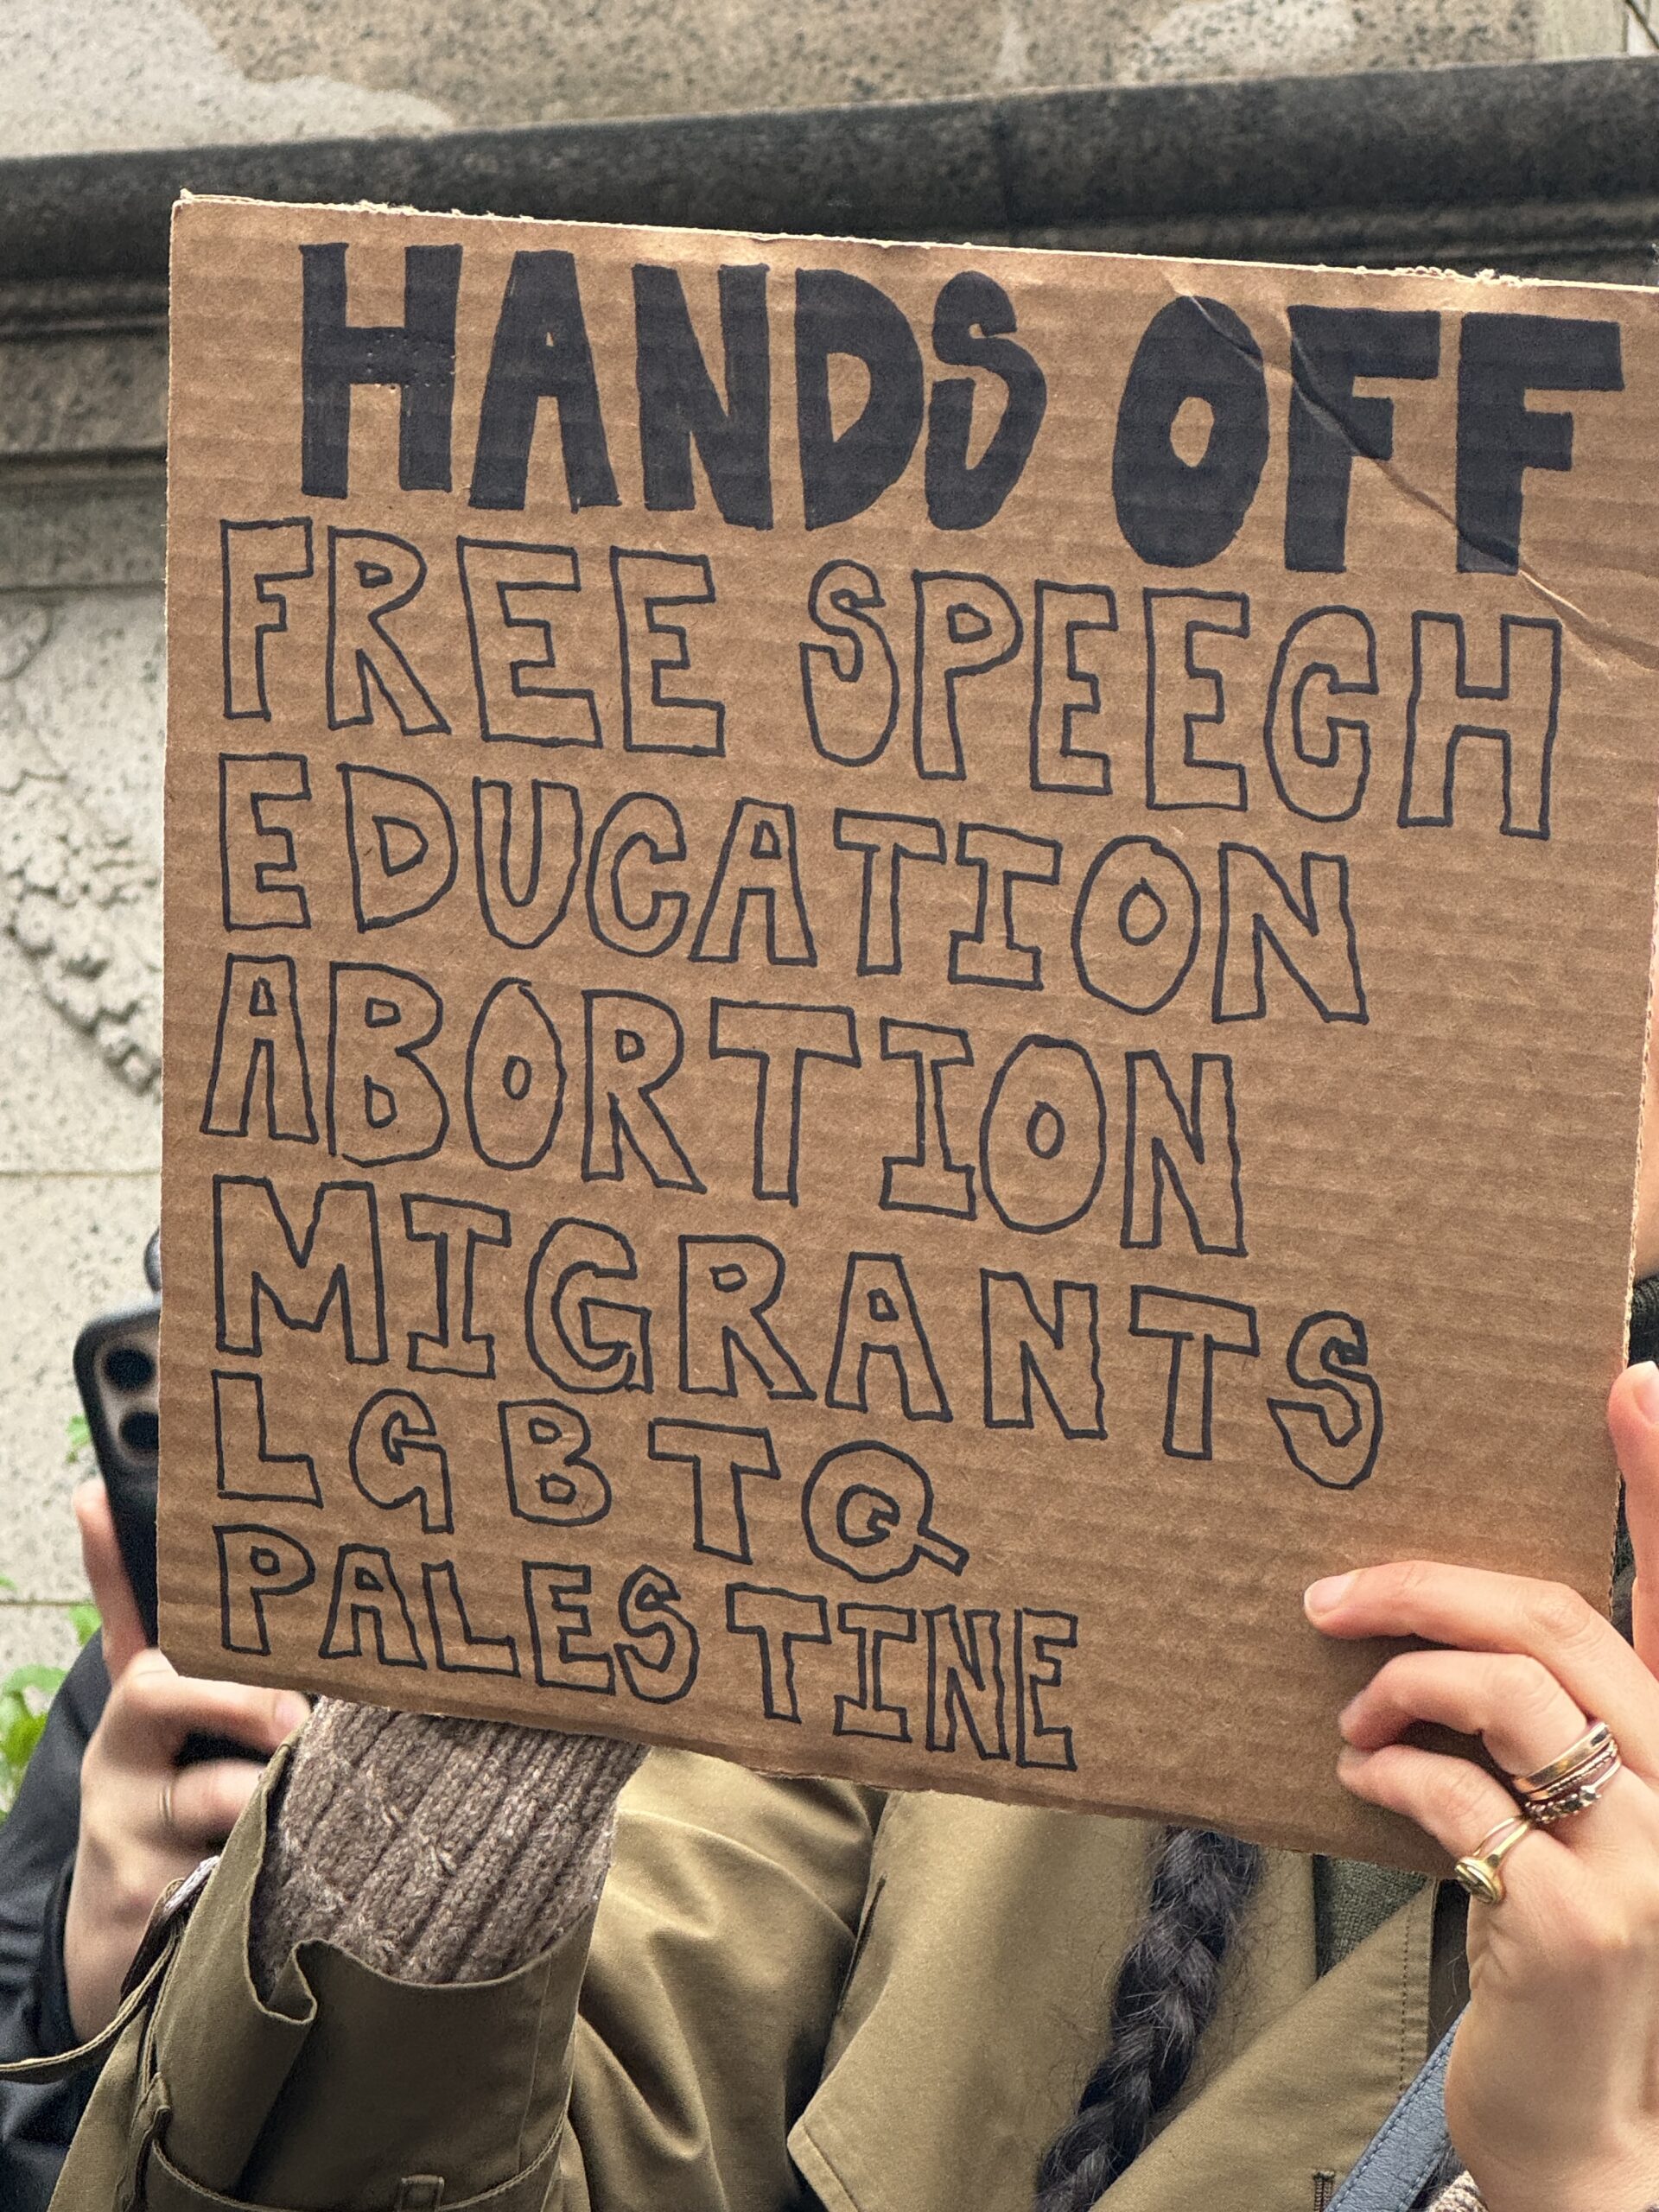 HANDS OFF
FREE SPEECH
EDUCATION
ABORTION
MIGRANTS
LGBTQ
PALESTINE